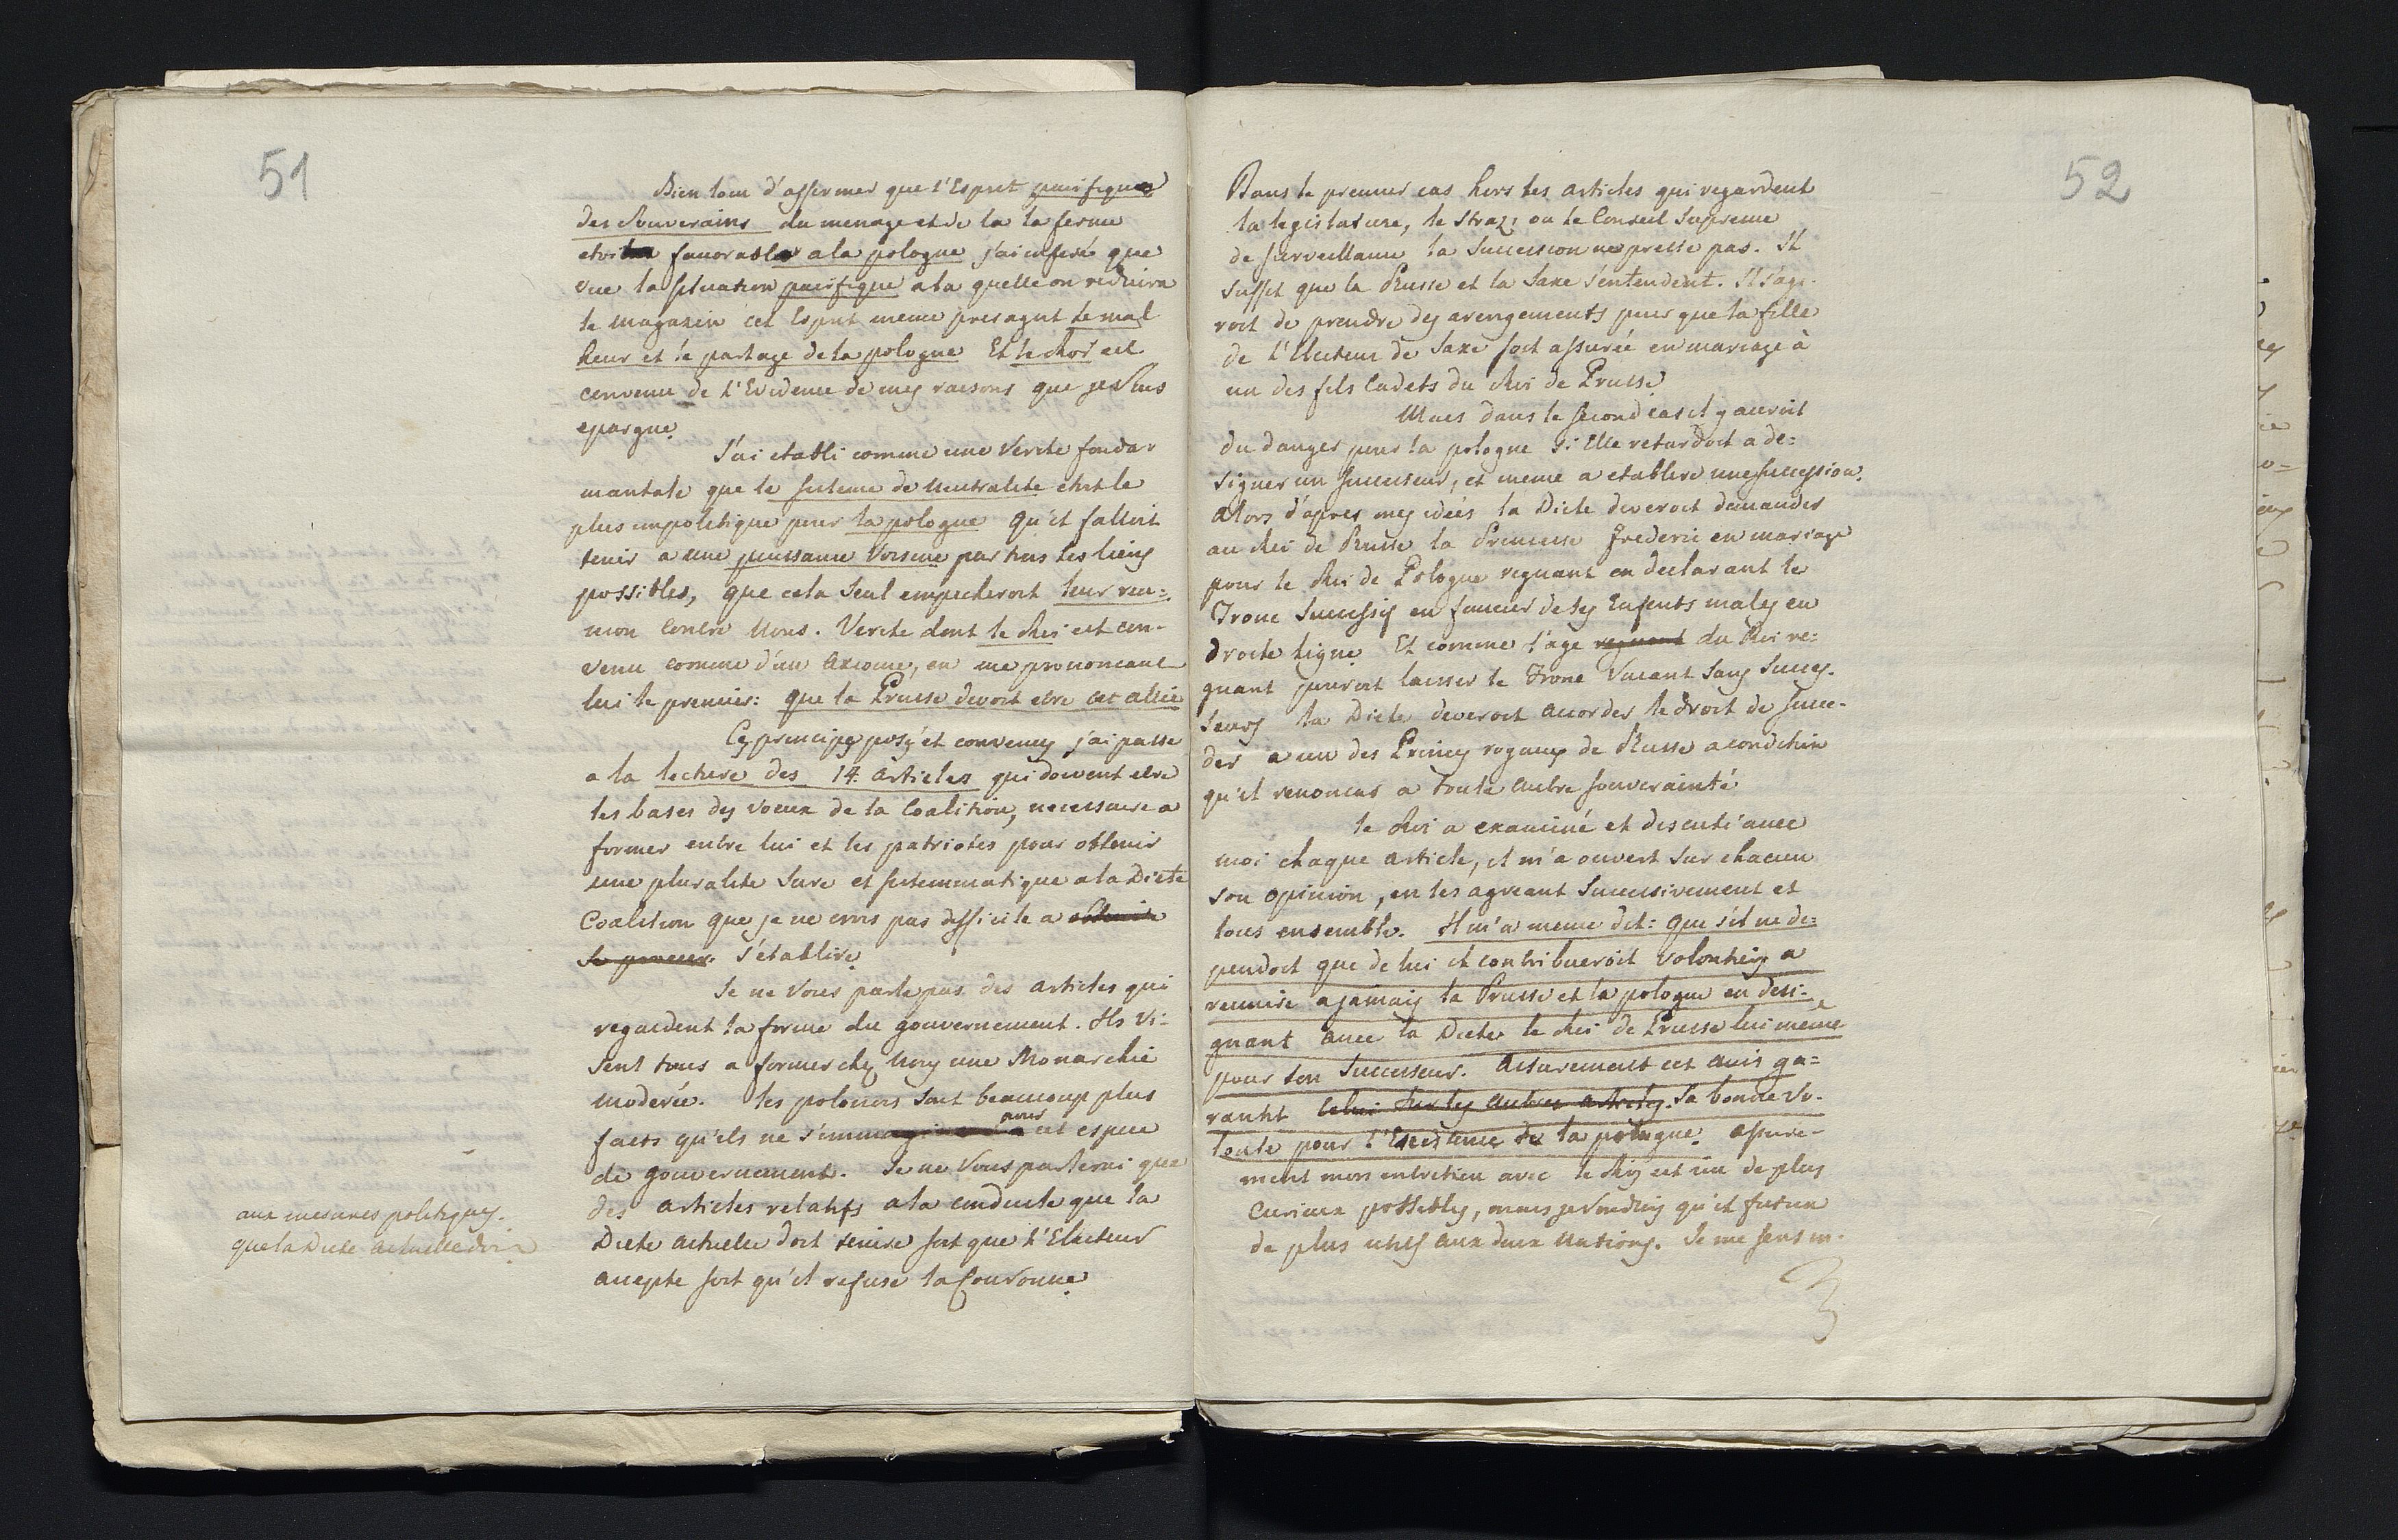 51
Bien loin d'affirmer que l'Esprit pacifique
des Souverains du menage et de la la ferme
etoit favorable a la pologne j'ai inferé que
vue la situation pacifique a la quelle on reduira
le magazin cet Esprit meme presagut le mal
heur et le partage de la pologne Et le Roi est
convenu de l'Evidence de mes raisons que je Vous
epargne.
J'ai etabli comme une Verite fonda
mantale que le sisteme de Neutralite etoit le
plus impolitique pour la pologne qu'il falloit
tenir a une puissance Voisine par tous les liens
possibles, que cela Seul empecheroit leur reu=
nion contre Nous. Verite dont le Roi est con-
venu comme d'un axiome, en me prononcant
lui le premier: que la Prusse devoit etre cet allié
Ces principes posés et convenus j'ai passe
a la lecture des 14. articles qui doivent etre
les bases des voeux de la Coalition, necessaire a
former entre lui et les patriotes pour obtenir
une pluralite Sure et sistemmatique a la Diete
Coalition que je ne crois pas difficile a obtenir
se procurer s'etablire.
Je ne Vous parle pas des articles qui
regardent la forme du gouvernement. Ils vi-
sent tous a former chez Nous une Monarchie
moderée. les polonois sont beaucoup plus
pour
faits qu'ils ne s'immaginent a cet espece
de gouvernement. Je ne Vous parlerai que
des articles relatifs a la conduite que la
Diete actuelle doit tenire soit que l'Electeur
accepte soit qu'il refuse la Couronne.
aux mesures politiques.
que la Diete actuelle doi
52
Dans le premier cas hors les articles qui regardent
la legislature, le Straz; ou le Conseil Supreme
de surveillance la Succession ne presse pas. Il
suffit que la Prusse et la Saxe s'entendent. Il s'agi-
roit de prendre des arengements pour que la fille
de l'Electeur de Saxe soit assurée en mariage à
un des fils Cadets du Roi de Prusse.
Mais dans le second cas il y auroit
du danger pour la pologne si Elle retardoit a de=
signer un successeur, et meme a etablire une succession.
Alors d'apres mes idées la Diete deveroit demander
au Roi de Prusse la Princesse Frederic en mariage
pour le Roi de Pologne regnant en declarant le
Trone Successif en faveur de ses Enfents males en
droite ligne. Et comme l'age regnant du Roi re=
gnant pouroit laisser le Trone Vacant Sans Succes-
seurs la Diete deveroit accorder le droit de succe-
der a un des Princes royaux de Prusse a condition
qu'il renoncat a toute autre souverainté
le Roi a examiné et discuté avec
moi chaque article, il m'a ouvert sur chacun
son opinion, en les agreant Successivement et
tous ensemble. Il m'a meme dit: que s'il ne de=
pendoit que de lui il contribueroit volontiers a
reunire a jamais la Prusse et la pologne en desi-
gnant avec la Diete le Roi de Prusse lui meme
pour son Successeur. Assurement cet avis ga=
rantit celui sur les autres articles. Sa bonne vo-
lonte pour l'Existence de la pologne. assure-
ment mon entretien avec le Roi est un de plus
curieux possibles, mais je Voudrois qu'il fut un
de plus utils aux deux Nations. Je me sens in-